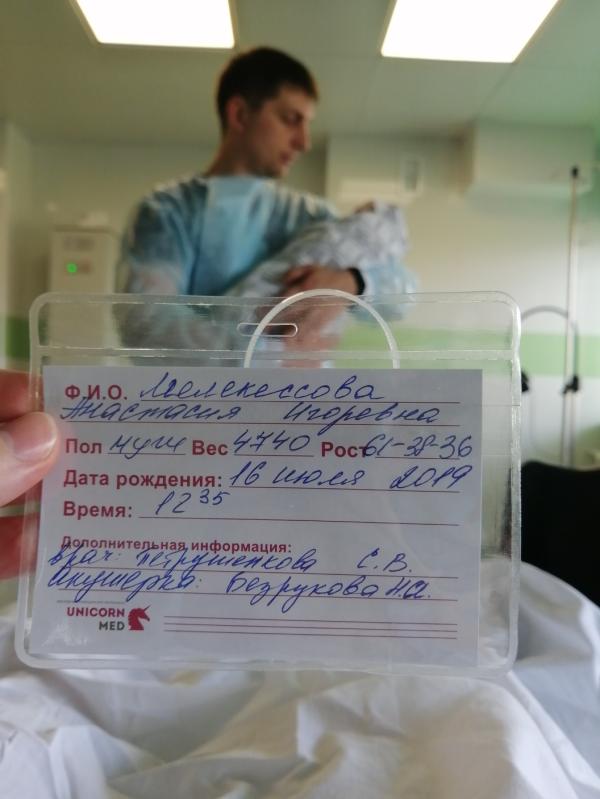 Ф.И.О. Мелекессова
Анастасия Игоревна
Пол муж Вес 4740 Рост 61-38-36
Дата рождения: 16 июля 2019
Время: 12 35
Дополнительная информация:
Врач: Петрушенкова С.В.
Акушерка: Безрукова Н.А.
UNICORN
MED